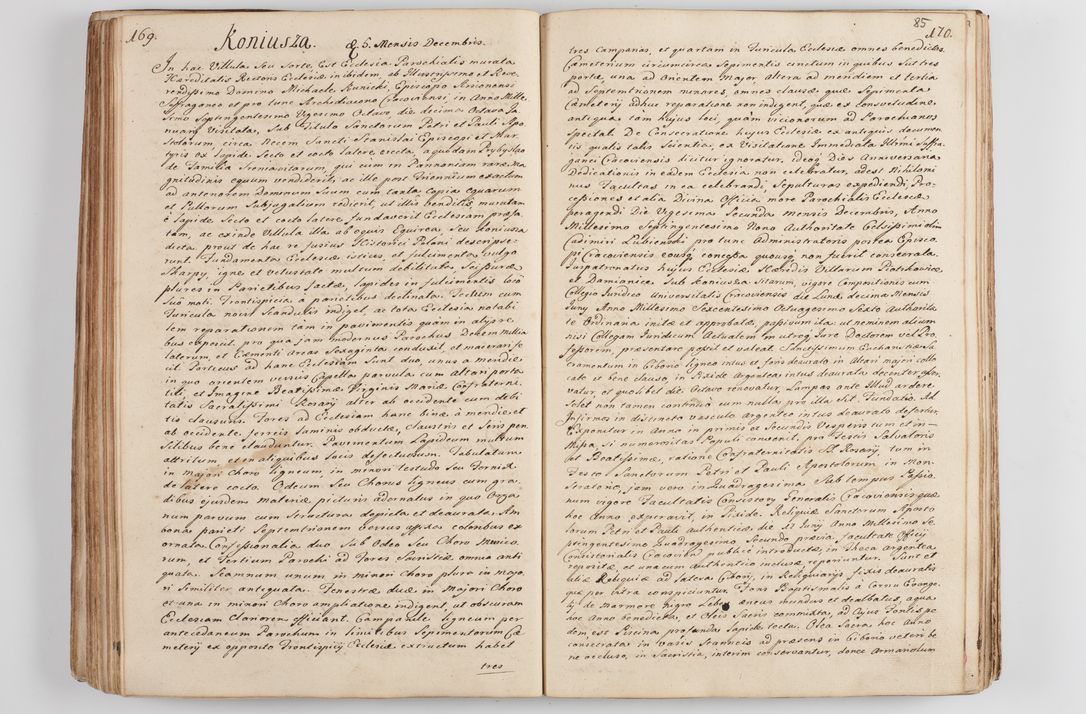 169.
Koniusza. & 5. Mensis Decembris.
In hac Villula Seu Sorte Est Ecclesia Parochialis murata
Hæreditatis Rectoris Ecclesiæ ibidem, ab Illustrissimo et Reve-
rendissimo Domino Michaele Kunicki, Episcopo Arsicnensi
Suffraganeo et pro tunc Archidiacono Cracoviensi, in Anno Mille-
simo Septingentesimo Vigesimo Octavo, die decima Octava Ja-
nuarij Visitata, Sub Titulo Sanctorum Petri et Pauli Apo-
stolorum, circa Necem Sancti Stanislai Episcopi et Mar-
tyris ex lapide Secto et cocto latere erecta, a quodam Prybyslao
de Familia Sreniavitarum, qui cum in Pannoniam raræ ma-
gnitudinis equum vendiderit, ac ille post Triennium exactum
ad anteriorem Dominum Suum cum tanta copia equarum
et Pullorum Subjugalium redierit, ut illis venditis, muratam
è lapide Secto et cocto latere, fundaverit Ecclesiam præfa-
tam, ac exinde Villula illa ab equis Equirea, Seu Koniusza
dicta, prout de hac re fusius Historici Poloni descripse-
runt. Fundamenta Ecclesiæ istius, et fulcimenta, vulgo
Skarpy, igne et vetustate multum debilitata, Scissuræ
plures in Parietibus factæ, lapides in fulcimentis loco
Suo moti. Frontispicia à parietibus declinata. Tectum cum
Turicula novis Scandulis indiget, ac tota Ecclesia notabi-
lem reparationem tam in pavimentis quam in alijs re-
bus exposcit, pro qua jam modernus Parochus Decem millia
laterum, et Cæmenti areas Sexaginta conduxit, et macerari fe-
cit. Porticus ad hanc Ecclesiam Sunt duo, unus a meridie
in quo orientem versus Capella parvula cum Altari porta-
tili, et Imagine Beatissimæ Virginis Mariæ Confraterni-
tatis Sacratissimi Rosarij alter ab occidente cum debi-
tis clausuris. Fores ad Ecclesiam hanc binæ à meridie et
ab occidente, ferreis laminis obductæ, Claustris et Seris pen-
silibus bene clauduntur. Pavimentum Lapideum multum
attritum, et in aliquibus locis defectuosum. Tabulatum
in Majori Choro ligneum, in minori testudo Seu Fornix
de latere cocto. Odeum Seu Chorus ligneus cum gra-
dibus ejusdem materiæ, picturis adornatus in quo Orga-
num parvum cum Structura depicta et deaurata. Am-
bona parieti Septentrionem versus affixa coloribus ex-
ornata. Confessionalia duo Sub Odeo Seu Choro Musico-
rum, et Tertium Parochi ad Fores Sacristiæ, omnia anti-
quata. Scamnum unum in minori Choro plura in majo-
ri Similiter antiquata. Fenestræ duæ in Majori Choro
et una in minori Choro ampliatione indigent, ut obscuram
Ecclesiam clariorem efficiant. Campanile ligneum per
antecedaneum Parochum in limitibus Sepimentorum Cæ-
meterij ex opposito Frontispicij Ecclesiæ extructum habet
tres
85
170.
tres Campanas, et quartam in Turicula Ecclesiæ omnes benedictas.
Cæmeterium circumcirca Sepimentis cinctum in quibus Sut tres
portæ, una ad Orientem Major altera ad meridiem et tertia
ad Septemtrionem minores, omnes clausæ, quæ Sepimenta
Cæmeterij adhuc reparatione non indigent, quæ ex consvetudine
antiqua tam hujus loci, quam vicinorum ad Parochianos
Spectat. De Consecratione hujus Ecclesiæ ex antiquis documen-
tis qualis talis Scientia, ex Visitatione Immediata Illrmi Suffra-
ganei Cracoviensis dicitur ignoratur, ideoq Dies Aniversaria
Dedicationis in eadem Ecclesia non celebratur, adest Nihilomi-
nus Facultas in ea celebrandi, Sepulturas expediendi, Pro-
cessiones et alia Divina Officia more Parochialis Ecclesiæ
peragendi Die Vigesima Secunda mensis Decembris, Anno
Millesimo Septingentesimo Nono Authoritate Celsissimi olim
Casimiri Lubienski pro tunc Administratoris postea Episco-
pi Cracoviensis eousq concessa quousq non fuerit consecrata.
Juspatronatus hujus Ecclesiæ Hæredis Villarum Piotrkowice
et Damianice Sub Koniusza Sitarum, vigore Compositionis cum
Collegio Juridico Universitatis Cracoviensis die Lunæ decima Mensis
Juny Anno Millesimo Sexcentesimo Octuagesimo Sexto Authorita-
te Ordinaria initæ et approbatæ, passivum ita, ut neminem alium
nisi Collegam Juridicum Actualem in utroq Jure Doctorem vel Pro-
fessorem, præsentare possit et valeat. Sanctissimum Eucharistiæ Sa-
cramentum in Ciborio ligneo intus et foris deaurato in Altari majori collo-
cato et bene clauso, in Pixide Argentea intus deaurata decenter asser-
vatur, et quolibet die Octavo renovatur. Lampas ante Illud ardere
Solet non tamen continuo cum nulla pro illa Sit Fundatio. Ad
Infirmos in distincto vasculo argenteo intus deaurato defertur.
Exponitur in Anno in primis et Secundis Vesperis tum et in-
Missa, Si numerositas Populi convenit, pro Festis Salvatoris
et Beatissimæ, ratione Confraternitatis SS. Rosarij, tum in
Festo Sanctorum Petri et Pauli Apostolorum, in Mon-
stratorio, jam vero in Quadragesima Sub tempus Passio-
num vigore Facultatis Consistory Generalis Cracoviensis quæ
hoc Anno expiravit, in Pixide. Reliquiæ Sanctorum Aposto-
lorum Petri et Pauli authenticæ, die 27 Juny Anno Millesimo Se-
ptingentesimo Quadragesimo Secundo prævia facultate Officij
Consistorialis Cracovien publice introductæ, in Theca argentea
repositæ, et una cum Authentico inclusæ, reperiuntur. Sunt et
aliæ Reliquiæ ad latera Ciborij, in Reliquiarijs fixis deauratis
quæ per vitra conspiciuntur. Fons Baptismalis à Cornu Evange-
lij de Marmore nigro Lebes æneus mundus et dealbatus, aqua
hoc Anno benedicta, et Oleis Sacris commixta, ad Cujus Fontis pe-
dem est Piscina profunda lapide tecta. Olea Sacra hoc Anno
consecrata in vasis Stanneis ad præsens in Ciborio veteri be-
ne occluso, in Sacristia, interim conservantur, donec Armariolum